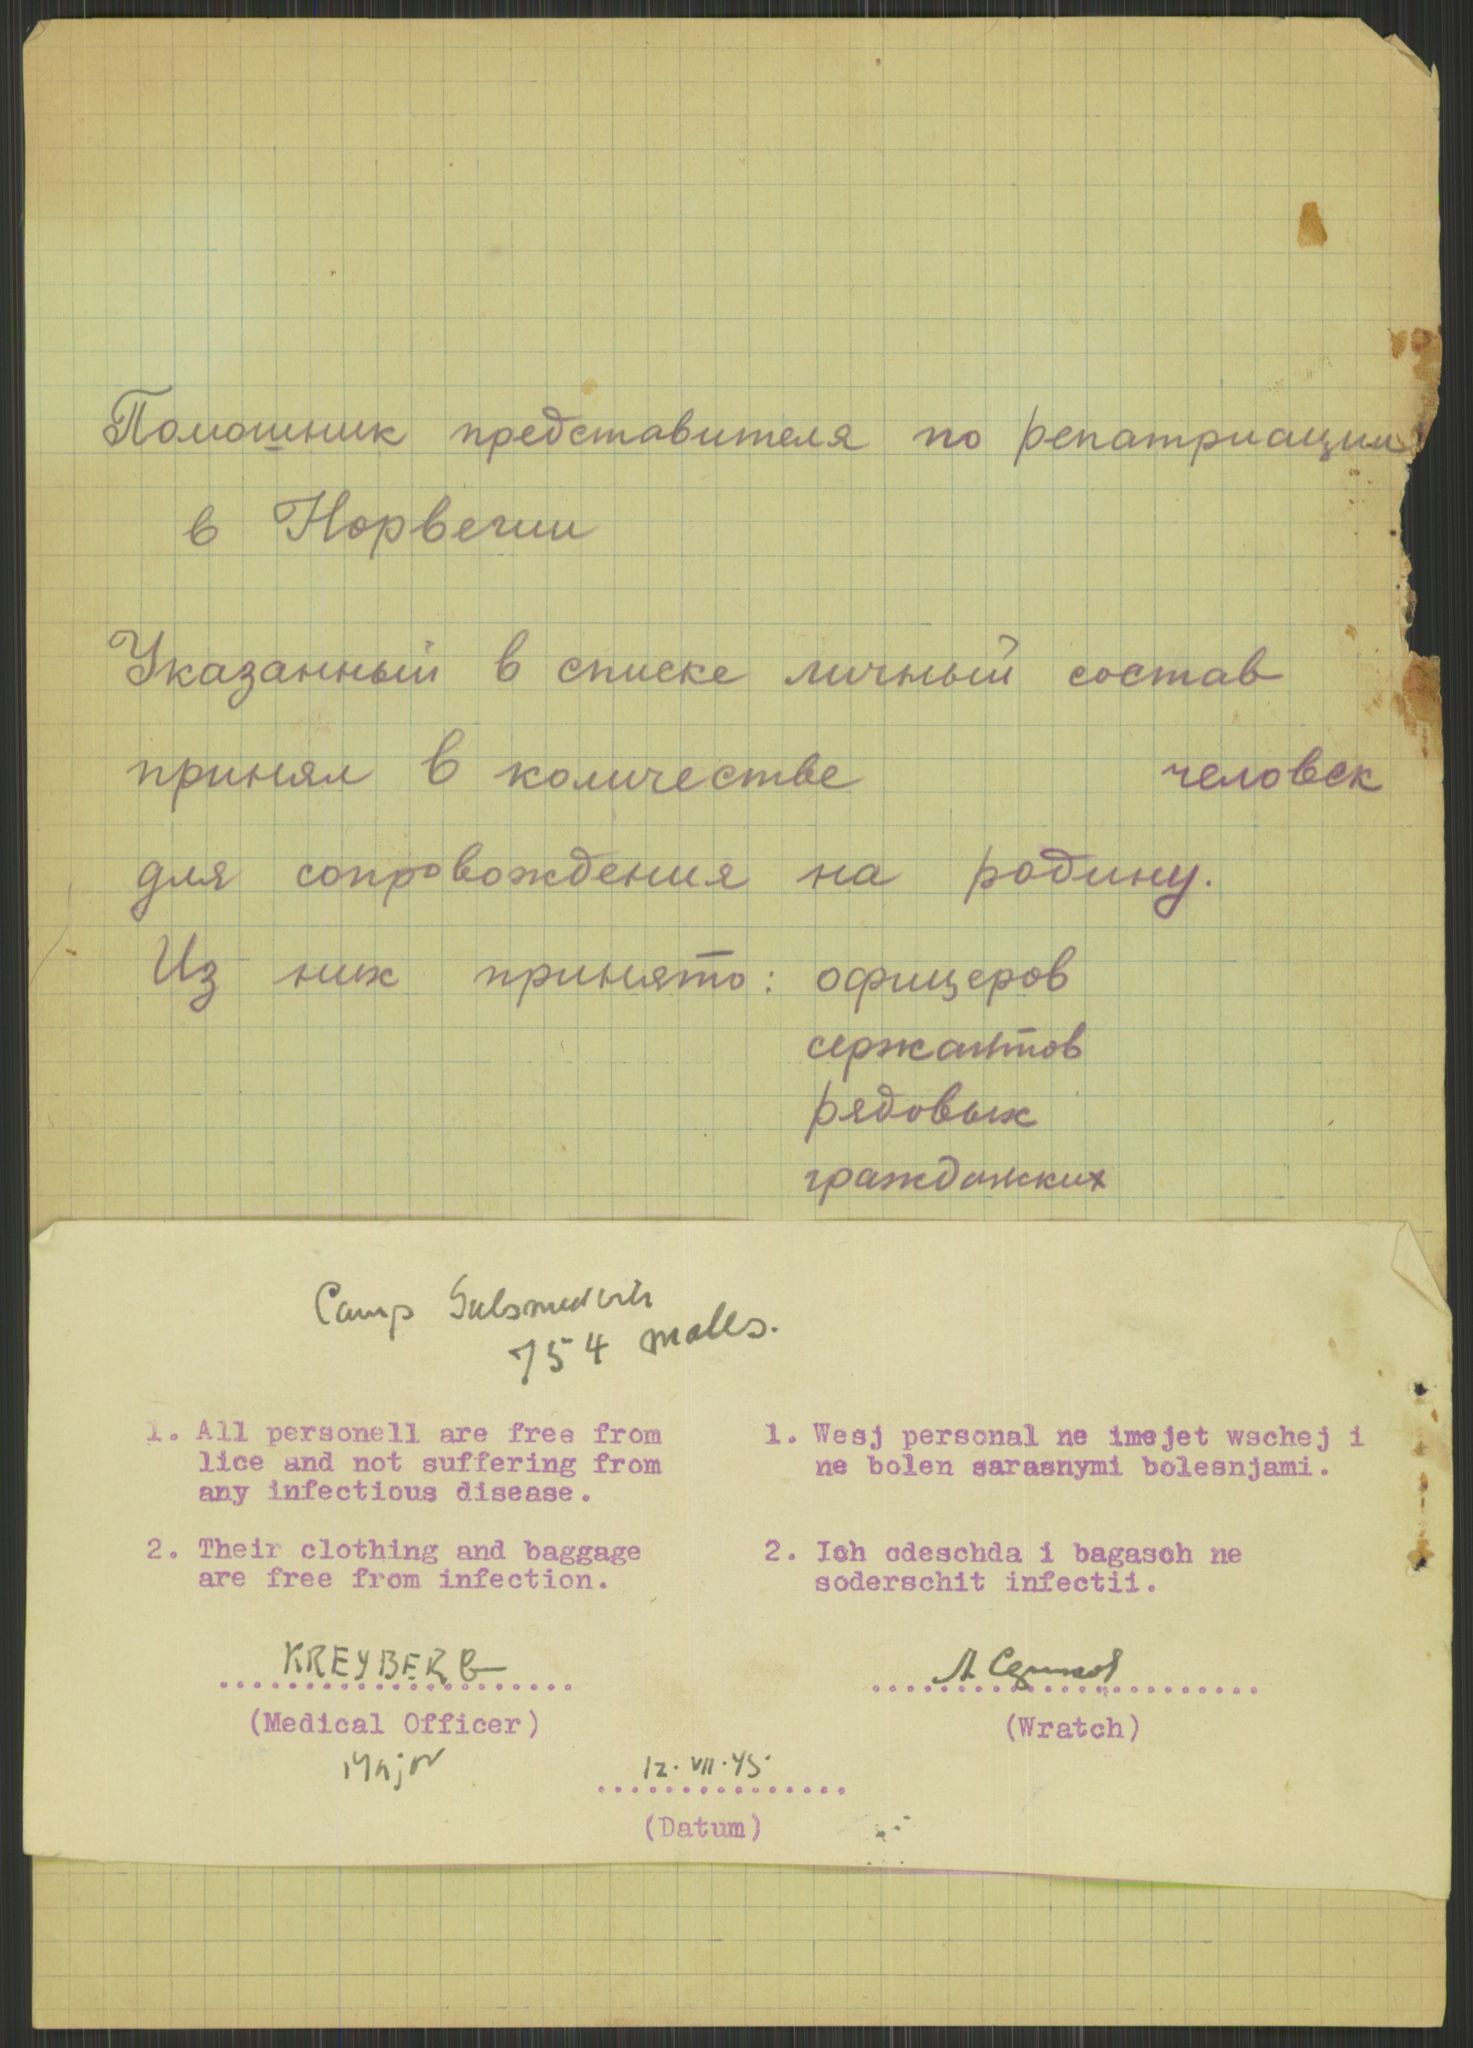 Помошник представителя по репатриации
в Норвегии
Указанный в списке личный состав
принял в количестве человек
для сопровождения на родину.
Из них принято: офицеров
сержантов
рядовых
гражданских
Camp
754 males.
1. All personell are free from
lice and not suffering from
any infectious disease.
2. Their clothing and baggage
are free from infection.
1. Wesj personal ne imejet wschej i
ne bolen sarasnymi bolesnjami.
2. Ich odeschda i bagasch ne
soderschit infectii.
KREYBERG
(Medical Officer)
Major
(Wratch)
12. VII. 45.
(Datum)